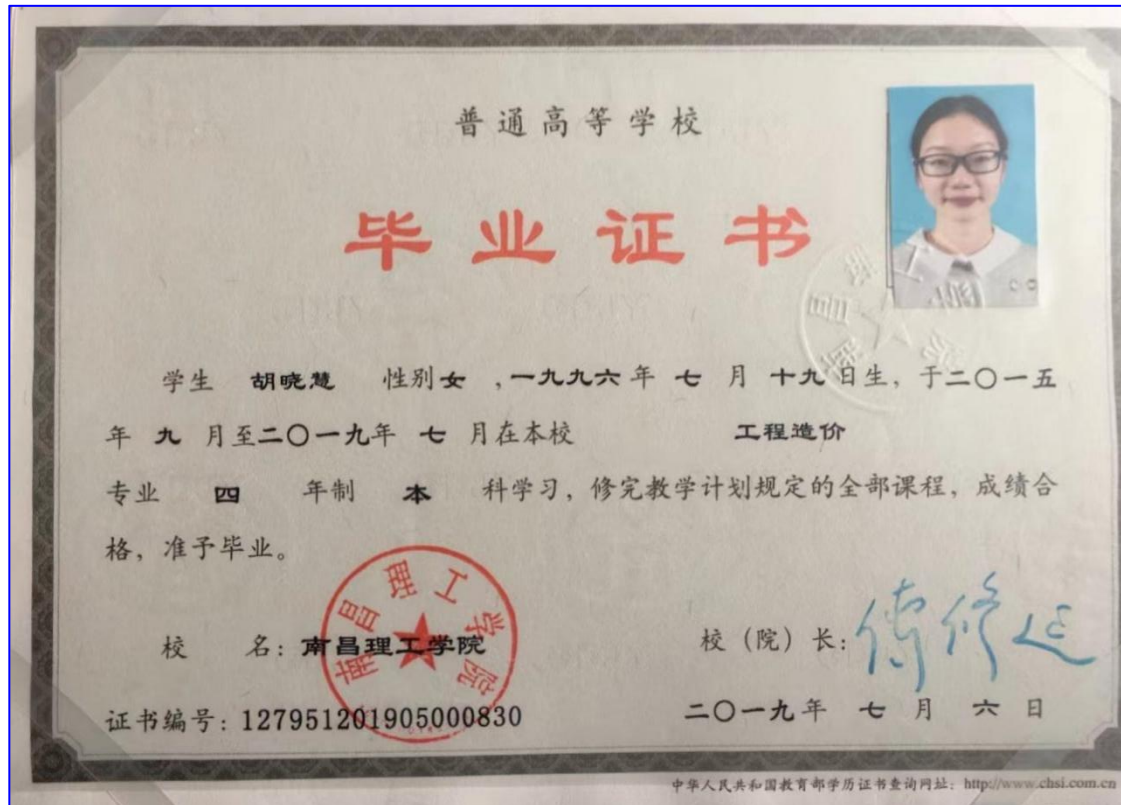 普通高等学校
毕业证书
学生 胡晓慧 性别女 ,一九九六年 七 月 十九日生, 于二〇一五
年 九 月至二〇一九年 七 月在本校 工程造价
专业 四 年制 本 科学习, 修完教学计划规定的全部课程, 成绩合
格, 准予毕业。
南昌理工学院
校 名: 南昌理工学院
校 (院) 长:
证书编号: 127951201905000830
二〇一九年 七 月 六 日
中华人民共和国教育部学历证书查询网址: http://www.chsi.com.cn